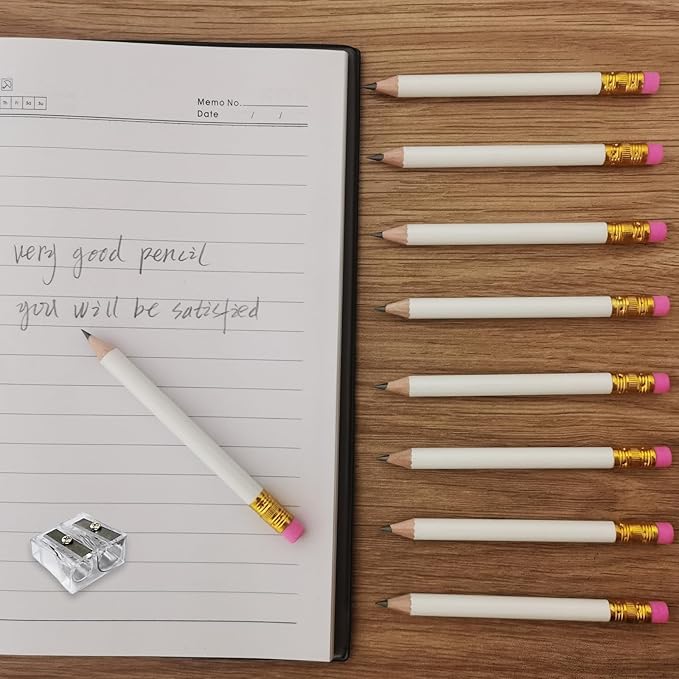 Th Fr Sa Su
Memo No.
Date / /
very good pencil
you will be satisfied